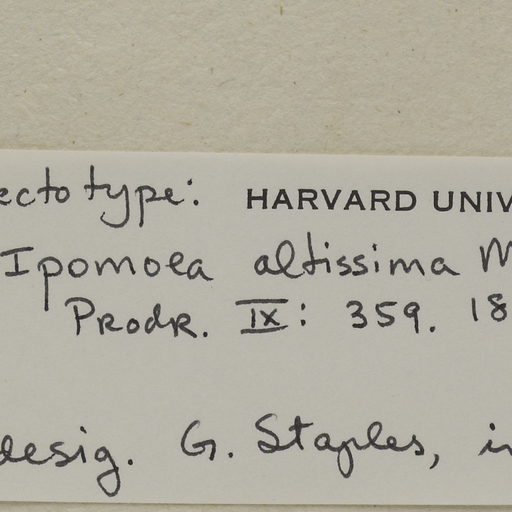 ectotype: HARVARD UNIV
Ipomoea altissima M
Prodr. IX: 359. 18
desig. G. Staples, in